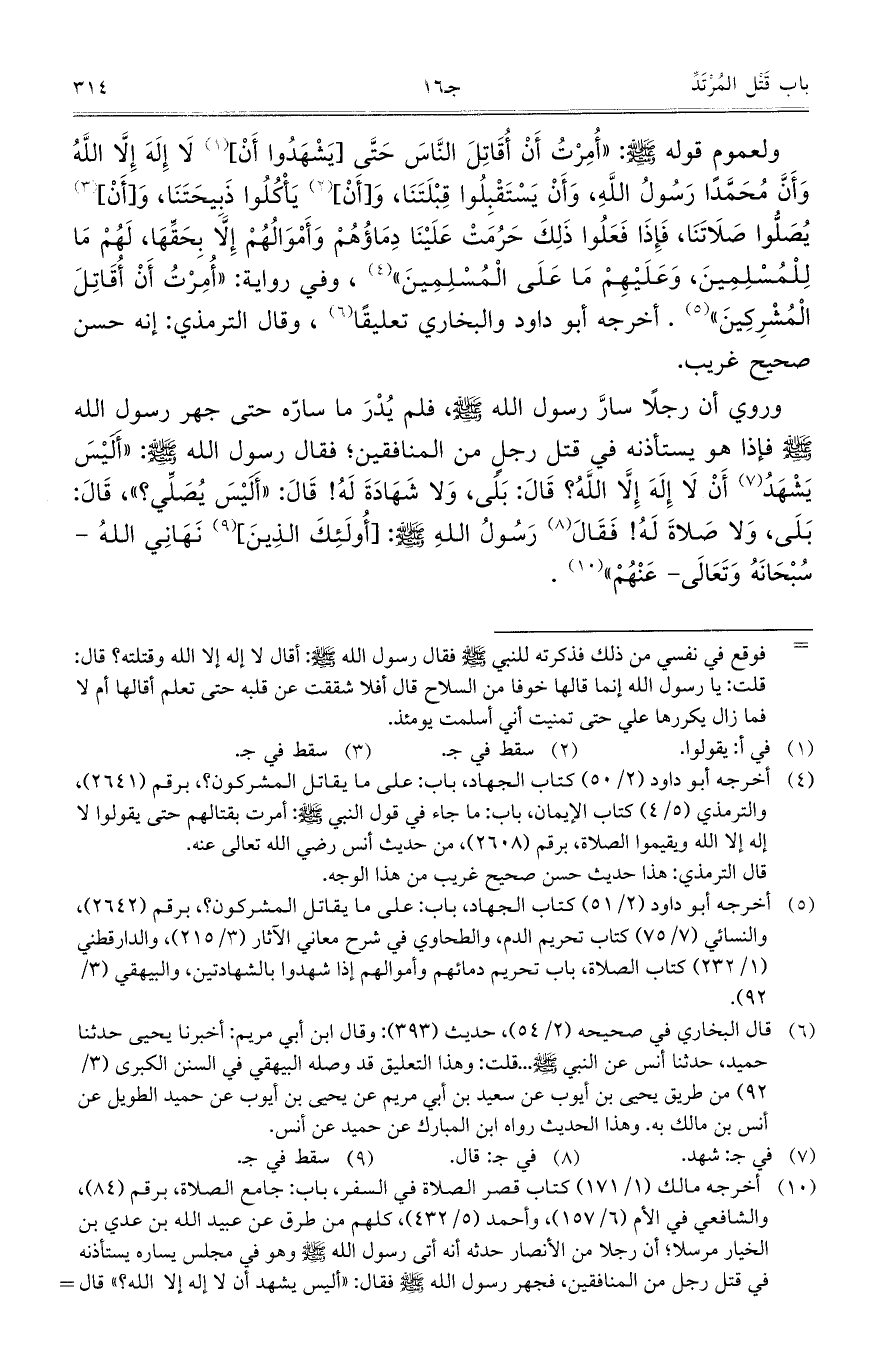 باب قَتْل المُرْتَدِّ جـ١٦ ٣١٤
ولعموم قوله ﷺ: «أُمِرْتُ أَنْ أُقَاتِلَ النَّاسَ حَتَّى [يَشْهَدُوا أَنْ](١) لَا إِلَهَ إِلَّا اللَّهُ
وَأَنَّ مُحَمَّدًا رَسُولُ اللَّهِ، وَأَنْ يَسْتَقْبِلُوا قِبْلَتَنَا، وَ[أَنْ](٢) يَأْكُلُوا ذَبِيحَتَنَا، وَ[أَنْ](٣)
يُصَلُّوا صَلَاتَنَا، فَإِذَا فَعَلُوا ذَلِكَ حَرُمَتْ عَلَيْنَا دِمَاؤُهُمْ وَأَمْوَالُهُمْ إِلَّا بِحَقِّهَا، لَهُمْ مَا
لِلْمُسْلِمِينَ، وَعَلَيْهِمْ مَا عَلَى الْمُسْلِمِينَ»(٤) ، وفي رواية: «أُمِرْتُ أَنْ أُقَاتِلَ
الْمُشْرِكِينَ»(٥) . أخرجه أبو داود والبخاري تعليقًا(٦) ، وقال الترمذي: إنه حسن
صحيح غريب.
وروي أن رجلًا سارَّ رسول الله ﷺ، فلم يُدْرَ ما سارّه حتى جهر رسول الله
ﷺ فإذا هو يستأذنه في قتل رجلٍ من المنافقين؛ فقال رسول الله ﷺ: «أَلَيْسَ
يَشْهَدُ(٧) أَنْ لَا إِلَهَ إِلَّا اللَّهُ؟ قَالَ: بَلَى، وَلا شَهَادَةَ لَهُ! قَالَ: «أَلَيْسَ يُصَلِّي؟»، قَالَ:
بَلَى، وَلا صَلاةَ لَهُ! فَقَالَ(٨) رَسُولُ اللهِ ﷺ: [أُولَئِكَ الذِينَ](٩) نَهَانِي اللهُ -
سُبْحَانَهُ وَتَعَالَى- عَنْهُمْ»(١٠) .
= فوقع في نفسي من ذلك فذكرته للنبي ﷺ فقال رسول الله ﷺ: أقال لا إله إلا الله وقتلته؟ قال:
قلت: يا رسول الله إنما قالها خوفا من السلاح قال أفلا شققت عن قلبه حتى تعلم أقالها أم لا
فما زال يكررها علي حتى تمنيت أني أسلمت يومئذ.
(١) في أ: يقولوا. (٢) سقط في جـ. (٣) سقط في جـ.
(٤) أخرجه أبو داود (٢/ ٥٠) كتاب الجهاد، باب: على ما يقاتل المشركون؟، برقم (٢٦٤١)،
والترمذي (٥/ ٤) كتاب الإيمان، باب: ما جاء في قول النبي ﷺ: أمرت بقتالهم حتى يقولوا لا
إله إلا الله ويقيموا الصلاة، برقم (٢٦٠٨)، من حديث أنس رضي الله تعالى عنه.
قال الترمذي: هذا حديث حسن صحيح غريب من هذا الوجه.
(٥) أخرجه أبو داود (٢/ ٥١) كتاب الجهاد، باب: على ما يقاتل المشركون؟، برقم (٢٦٤٢)،
والنسائي (٧/ ٧٥) كتاب تحريم الدم، والطحاوي في شرح معاني الآثار (٣/ ٢١٥)، والدارقطني
(١/ ٢٣٢) كتاب الصلاة، باب تحريم دمائهم وأموالهم إذا شهدوا بالشهادتين، والبيهقي (٣/
٩٢).
(٦) قال البخاري في صحيحه (٢/ ٥٤)، حديث (٣٩٣): وقال ابن أبي مريم: أخبرنا يحيى حدثنا
حميد، حدثنا أنس عن النبي ﷺ...قلت: وهذا التعليق قد وصله البيهقي في السنن الكبرى (٣/
٩٢) من طريق يحيى بن أيوب عن سعيد بن أبي مريم عن يحيى بن أيوب عن حميد الطويل عن
أنس بن مالك به. وهذا الحديث رواه ابن المبارك عن حميد عن أنس.
(٧) في جـ: شهد. (٨) في جـ: قال. (٩) سقط في جـ.
(١٠) أخرجه مالك (١/ ١٧١) كتاب قصر الصلاة في السفر، باب: جامع الصلاة، برقم (٨٤)،
والشافعي في الأم (٦/ ١٥٧)، وأحمد (٥/ ٤٣٢)، كلهم من طرق عن عبيد الله بن عدي بن
الخيار مرسلا؛ أن رجلا من الأنصار حدثه أنه أتى رسول الله ﷺ وهو في مجلس يساره يستأذنه
في قتل رجل من المنافقين، فجهر رسول الله ﷺ فقال: «أليس يشهد أن لا إله إلا الله؟» قال =